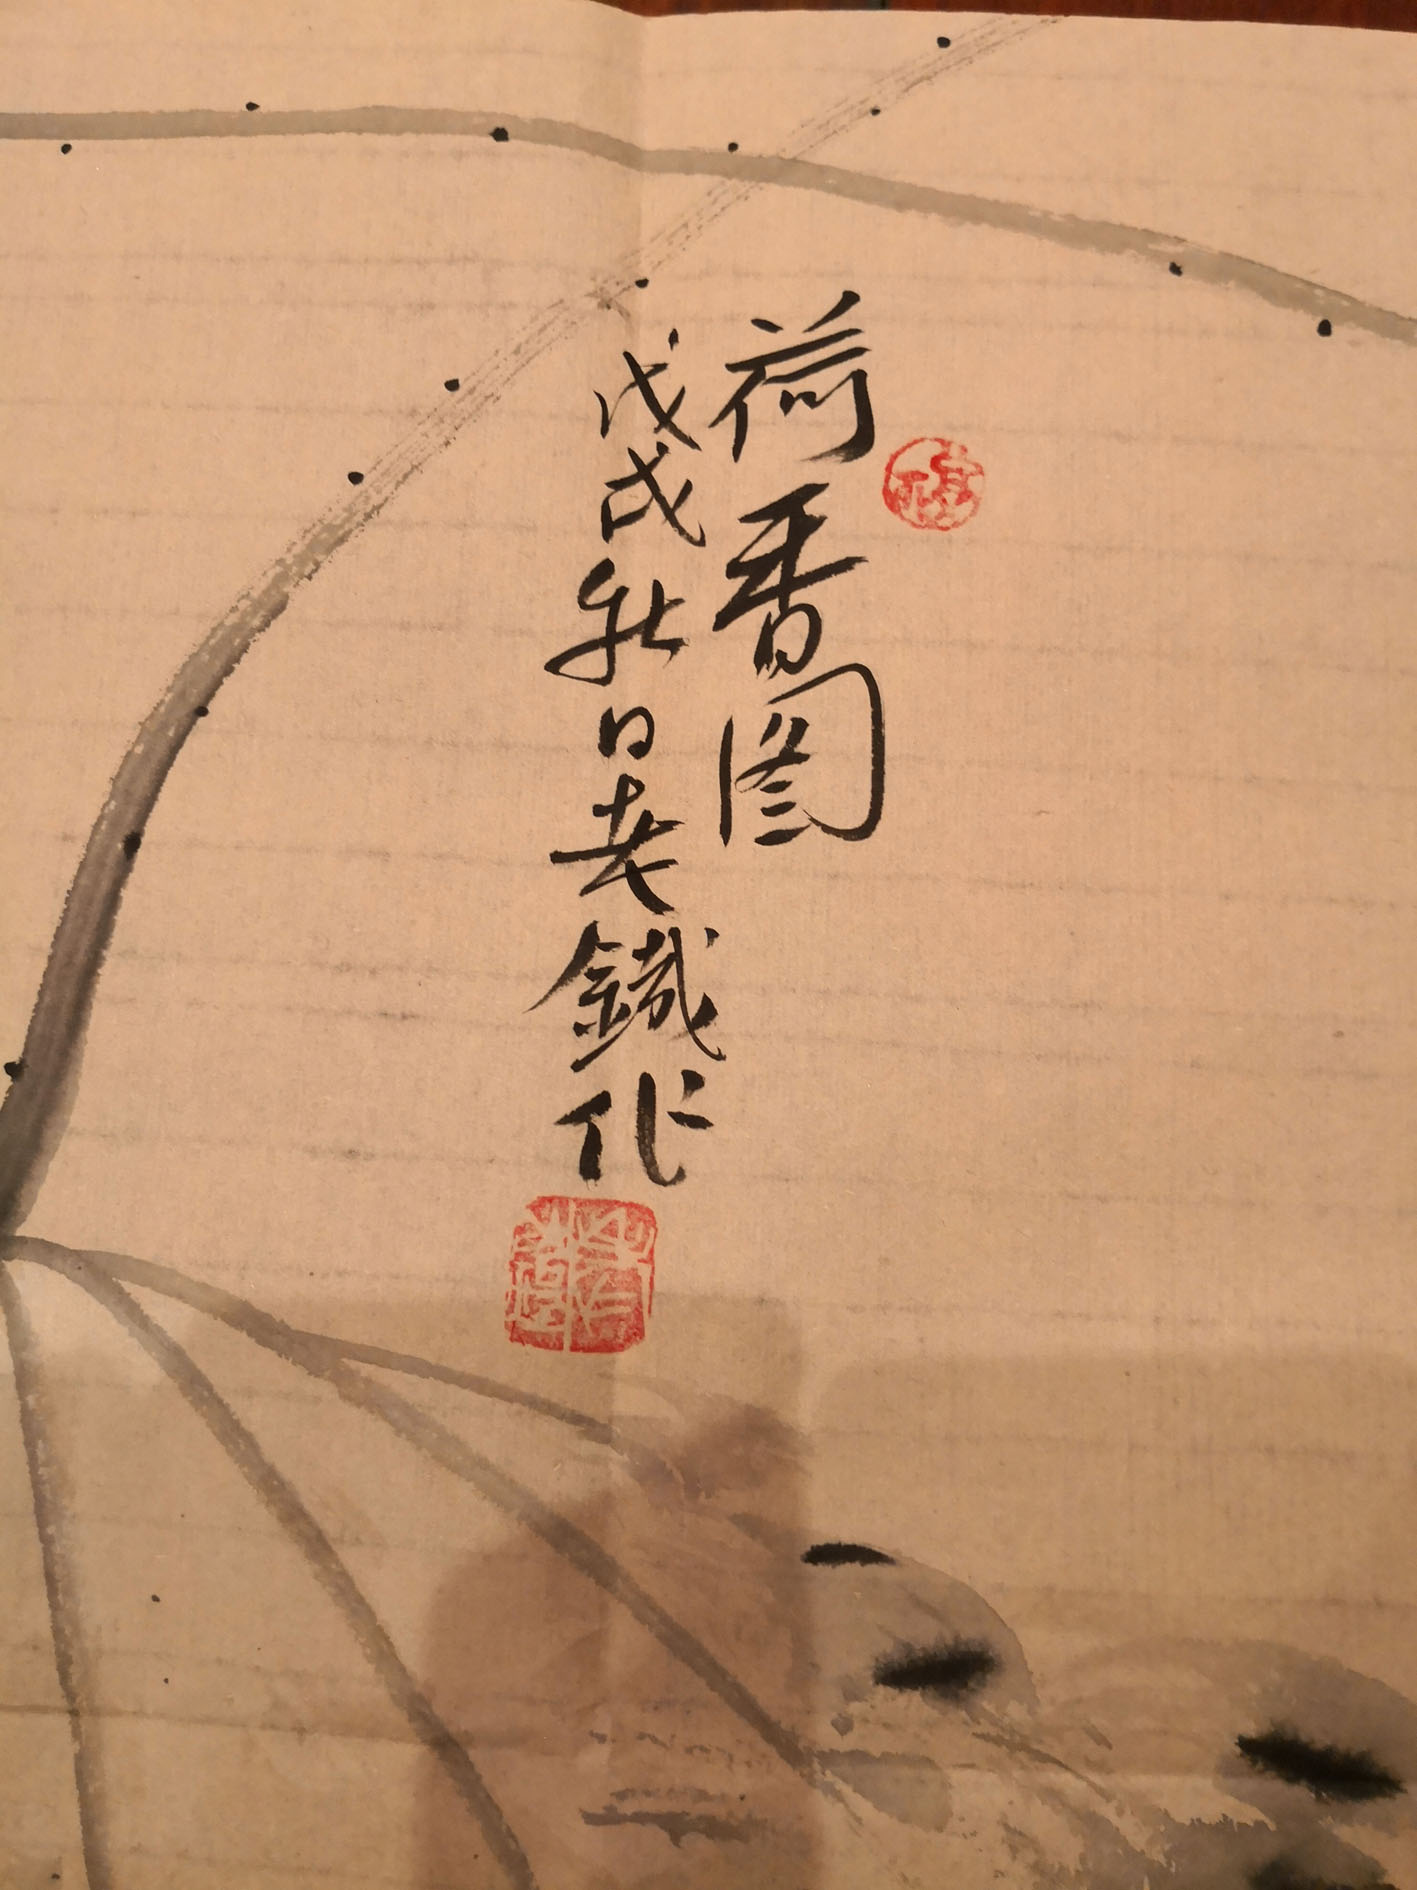 荷香图
戊戌秋日老鐵作